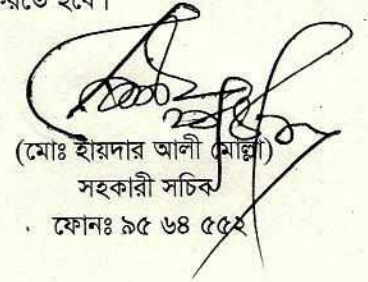 করতে হবে।
(মোঃ হায়দার আলী মোল্লা)
সহকারী সচিব
ফোনঃ ৯৫ ৬৪ ৫৫২